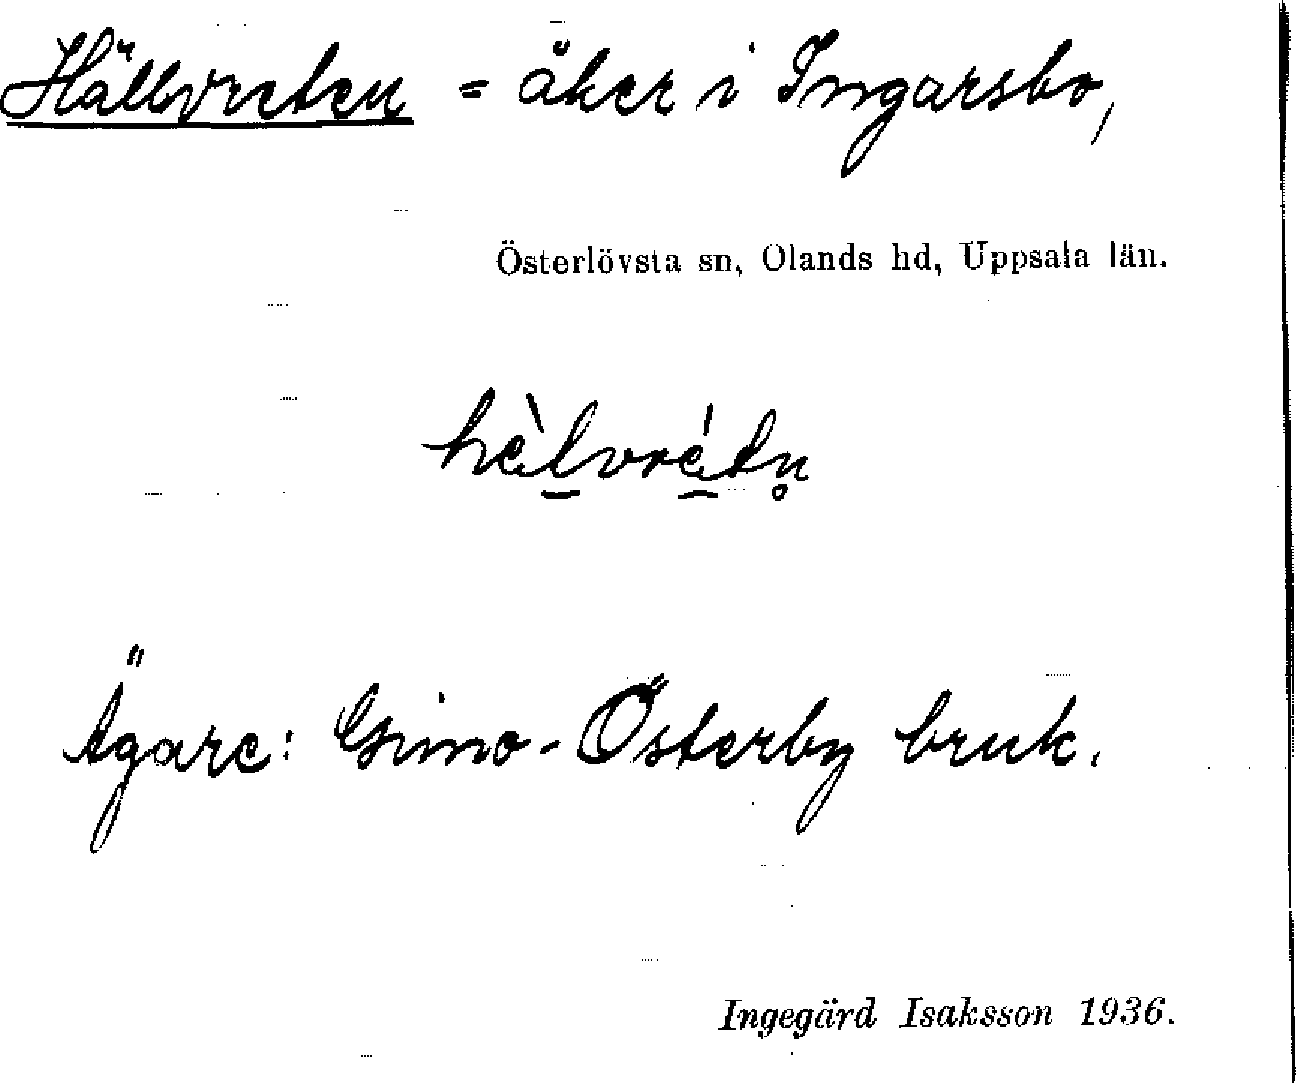 Hällvreten = åker i Ingarsbo,
Österlövsta sn, Olands hd, Uppsala län.
hèlvrétn̥
Ägare: Gimo-Österby bruk.
Ingegärd Isaksson 1936.